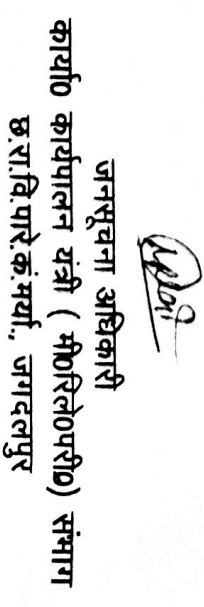 जनसूचना अधिकारी
कार्या0 कार्यपालन यंत्री ( मी0रिले0परी0) संभाग
छ.रा.वि.पारे.कं.मर्या., जगदलपुर